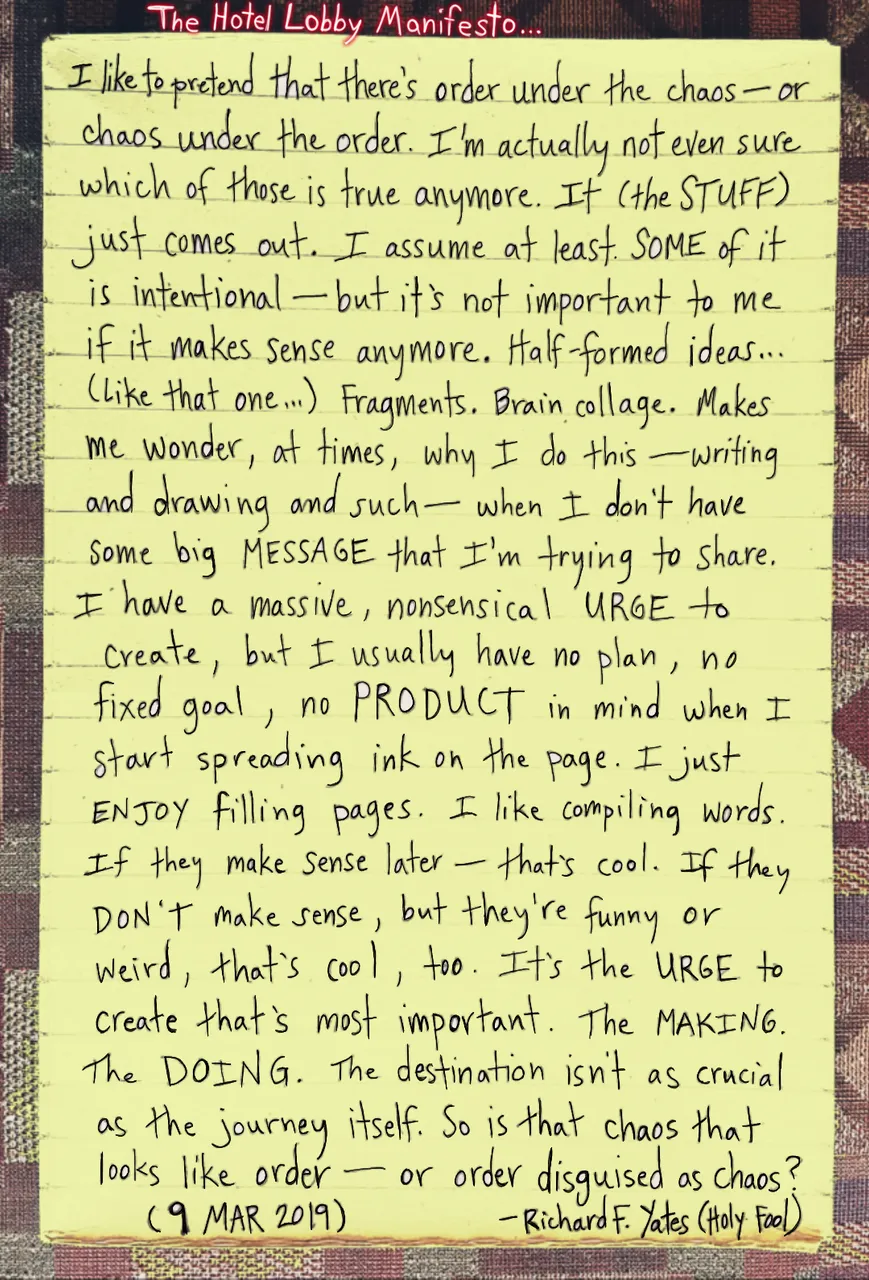 The Hotel Lobby Manifesto...
I like to pretend that there's order under the chaos — or
chaos under the order. I'm actually not even sure
which of those is true anymore. It (the STUFF)
just comes out. I assume at least SOME of it
is intentional — but it's not important to me
if it makes sense anymore. Half-formed ideas...
(Like that one...) Fragments. Brain collage. Makes
me wonder, at times, why I do this — writing
and drawing and such — when I don't have
some big MESSAGE that I'm trying to share.
I have a massive, nonsensical URGE to
create, but I usually have no plan, no
fixed goal, no PRODUCT in mind when I
start spreading ink on the page. I just
ENJOY filling pages. I like compiling words.
If they make sense later — that's cool. If they
DON'T make sense, but they're funny or
weird, that's cool, too. It's the URGE to
create that's most important. The MAKING.
The DOING. The destination isn't as crucial
as the journey itself. So is that chaos that
looks like order — or order disguised as chaos?
(9 MAR 2019) — Richard F. Yates (Holy Fool)